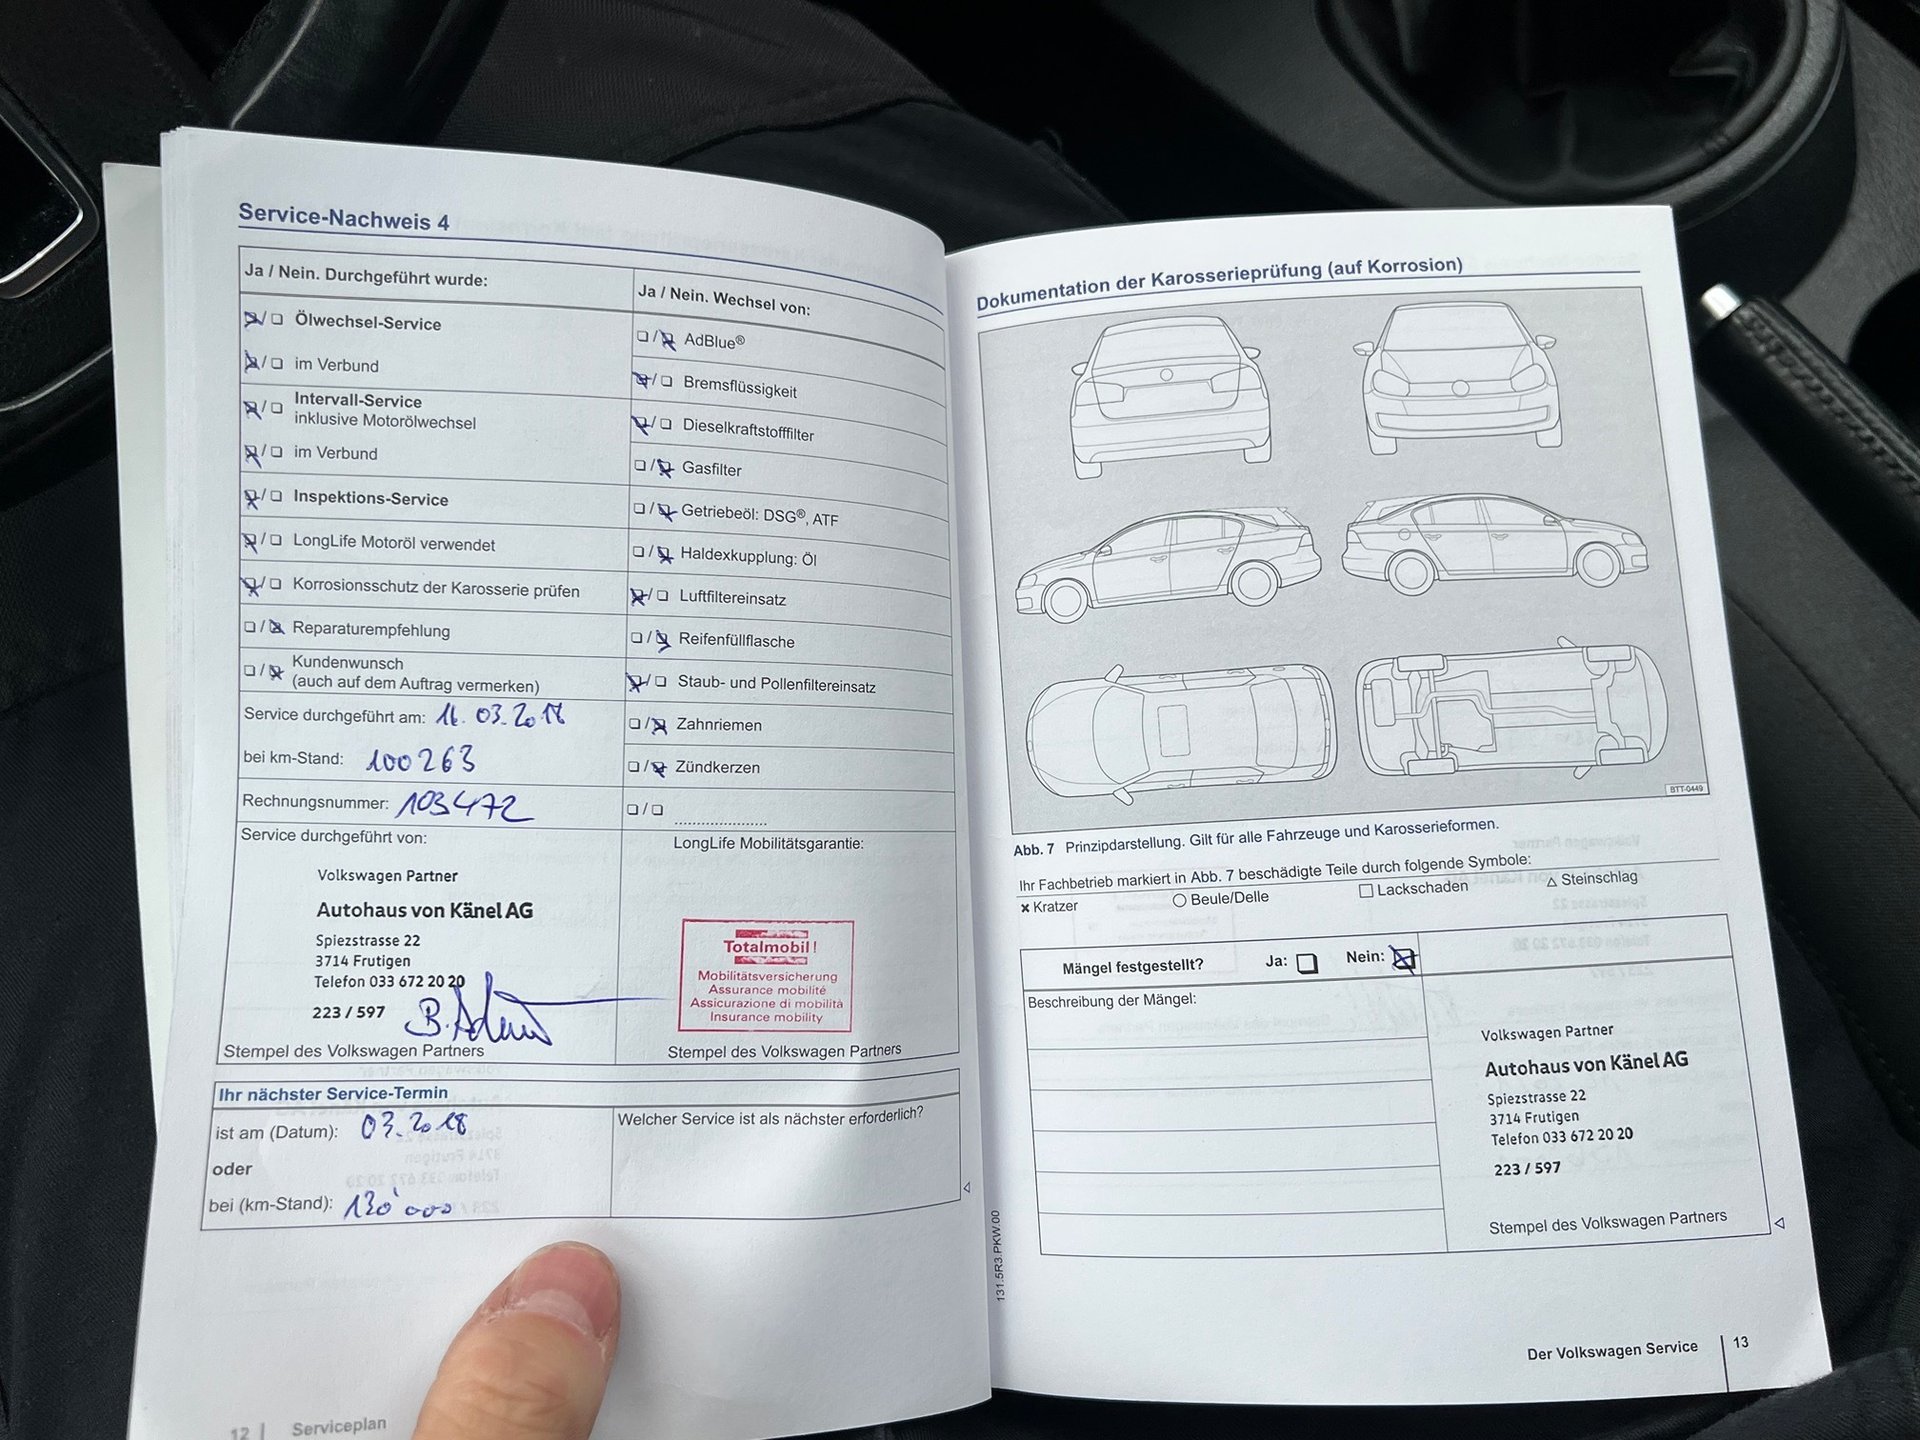 Service-Nachweis 4
Ja / Nein. Durchgeführt wurde:
Ölwechsel-Service
im Verbund
Intervall-Service
inklusive Motorölwechsel
im Verbund
Inspektions-Service
LongLife Motoröl verwendet
Korrosionsschutz der Karosserie prüfen
Reparaturempfehlung
Kundenwunsch
(auch auf dem Auftrag vermerken)
Service durchgeführt am: 16.03.2018
bei km-Stand: 100263
Rechnungsnummer: 103472
Ja / Nein. Wechsel von:
AdBlue®
Bremsflüssigkeit
Dieselkraftstofffilter
Gasfilter
Getriebeöl: DSG®, ATF
Haldexkupplung: Öl
Luftfiltereinsatz
Reifenfüllflasche
Staub- und Pollenfiltereinsatz
Zahnriemen
Zündkerzen
Service durchgeführt von:
Volkswagen Partner
Autohaus von Känel AG
Spiezstrasse 22
3714 Frutigen
Telefon 033 672 20 20
223 / 597
Stempel des Volkswagen Partners
LongLife Mobilitätsgarantie:
Totalmobil!
Mobilitätsversicherung
Assurance mobilité
Assicurazione di mobilità
Insurance mobility
Stempel des Volkswagen Partners
Ihr nächster Service-Termin
ist am (Datum): 03.2018
oder
bei (km-Stand): 130'000
Welcher Service ist als nächster erforderlich?
12 | Serviceplan
Dokumentation der Karosserieprüfung (auf Korrosion)
BTT-0449
Abb. 7 Prinzipdarstellung. Gilt für alle Fahrzeuge und Karosserieformen.
Ihr Fachbetrieb markiert in Abb. 7 beschädigte Teile durch folgende Symbole:
Kratzer Beule/Delle Lackschaden Steinschlag
Mängel festgestellt? Ja: Nein:
Beschreibung der Mängel:
Volkswagen Partner
Autohaus von Känel AG
Spiezstrasse 22
3714 Frutigen
Telefon 033 672 20 20
223 / 597
Stempel des Volkswagen Partners
131.5R3.PKW.00
Der Volkswagen Service | 13